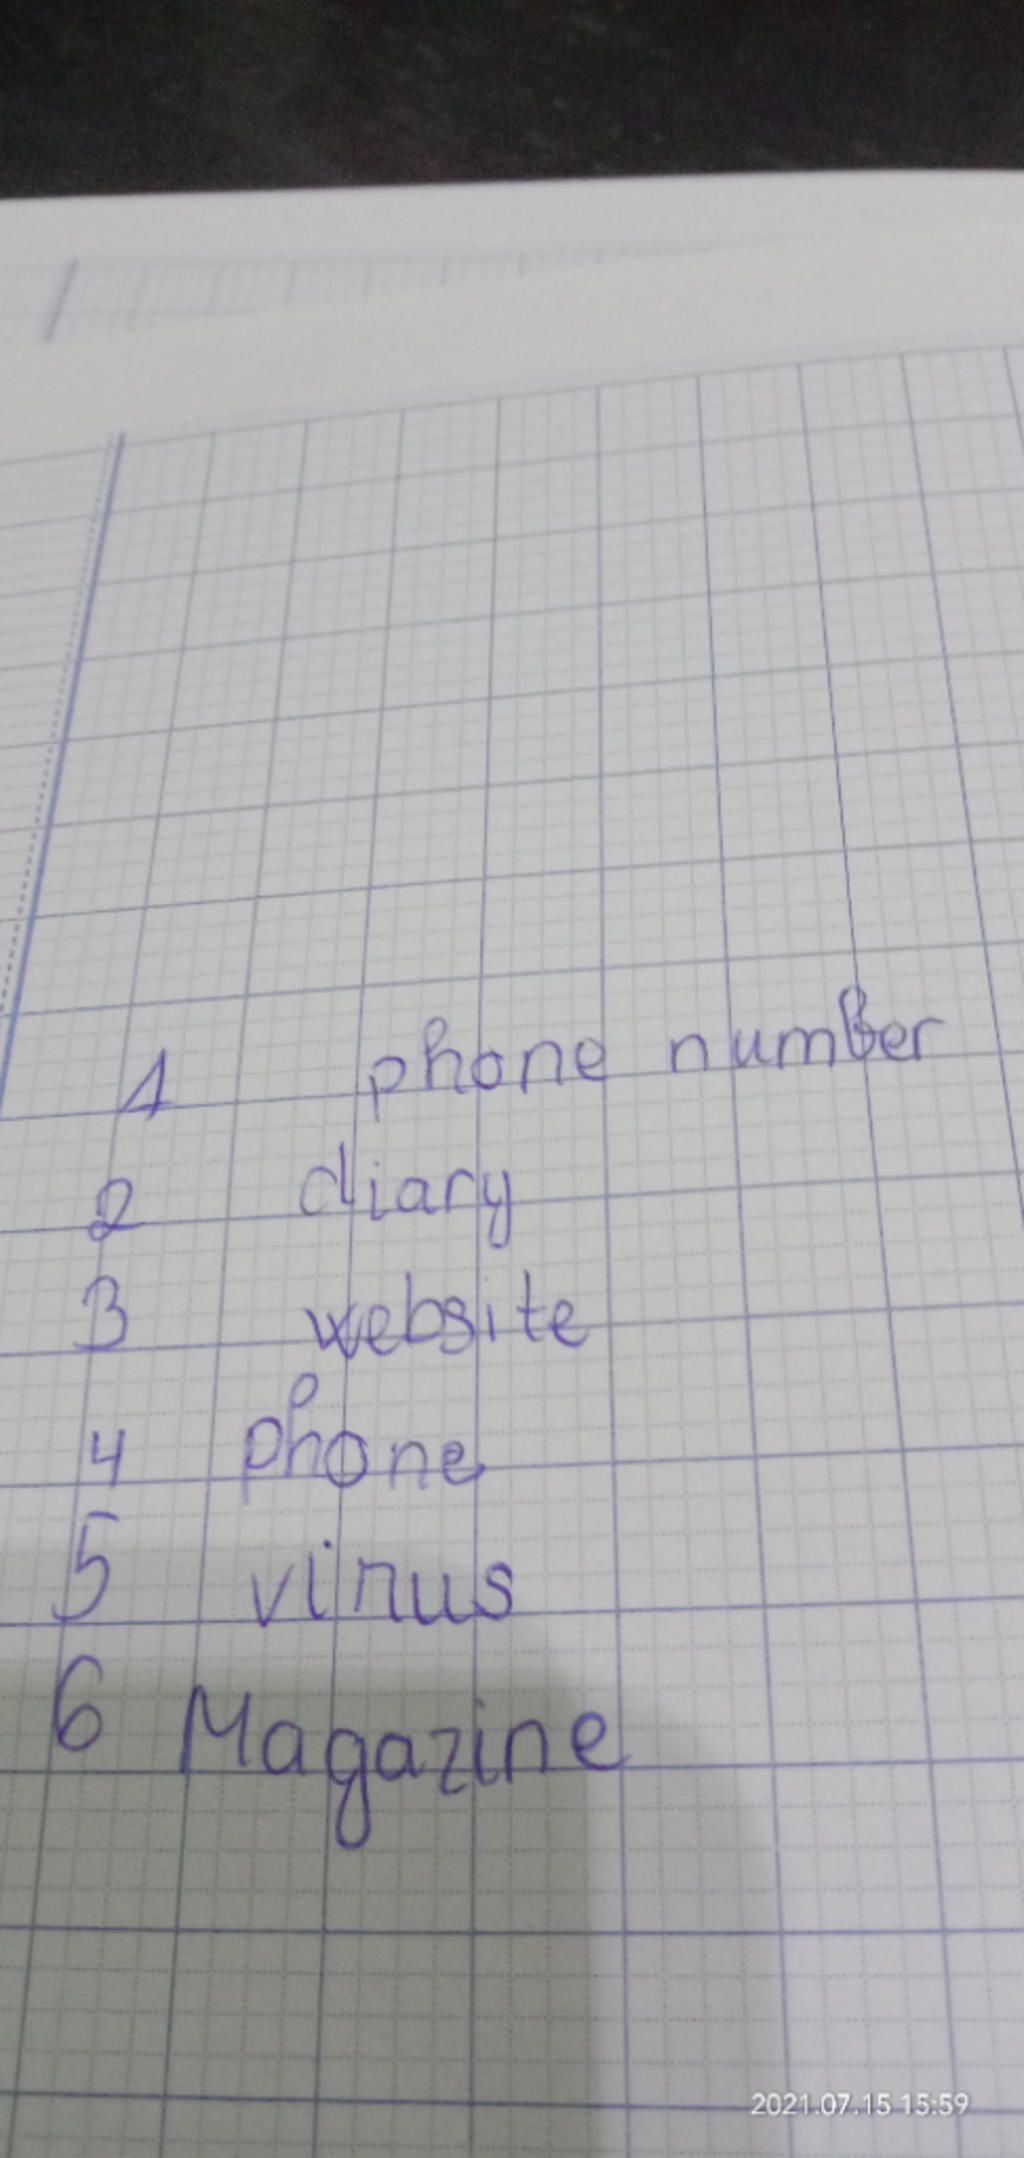 1 phone number
2 diary
3 website
4 phone
5 virus
6 Magazine
2021.07.15 15:59